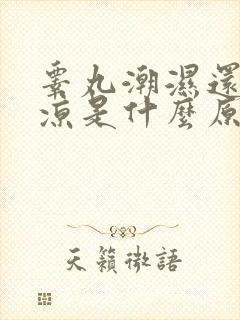 睪丸潮濕還
涼是什麼原
天籟微語